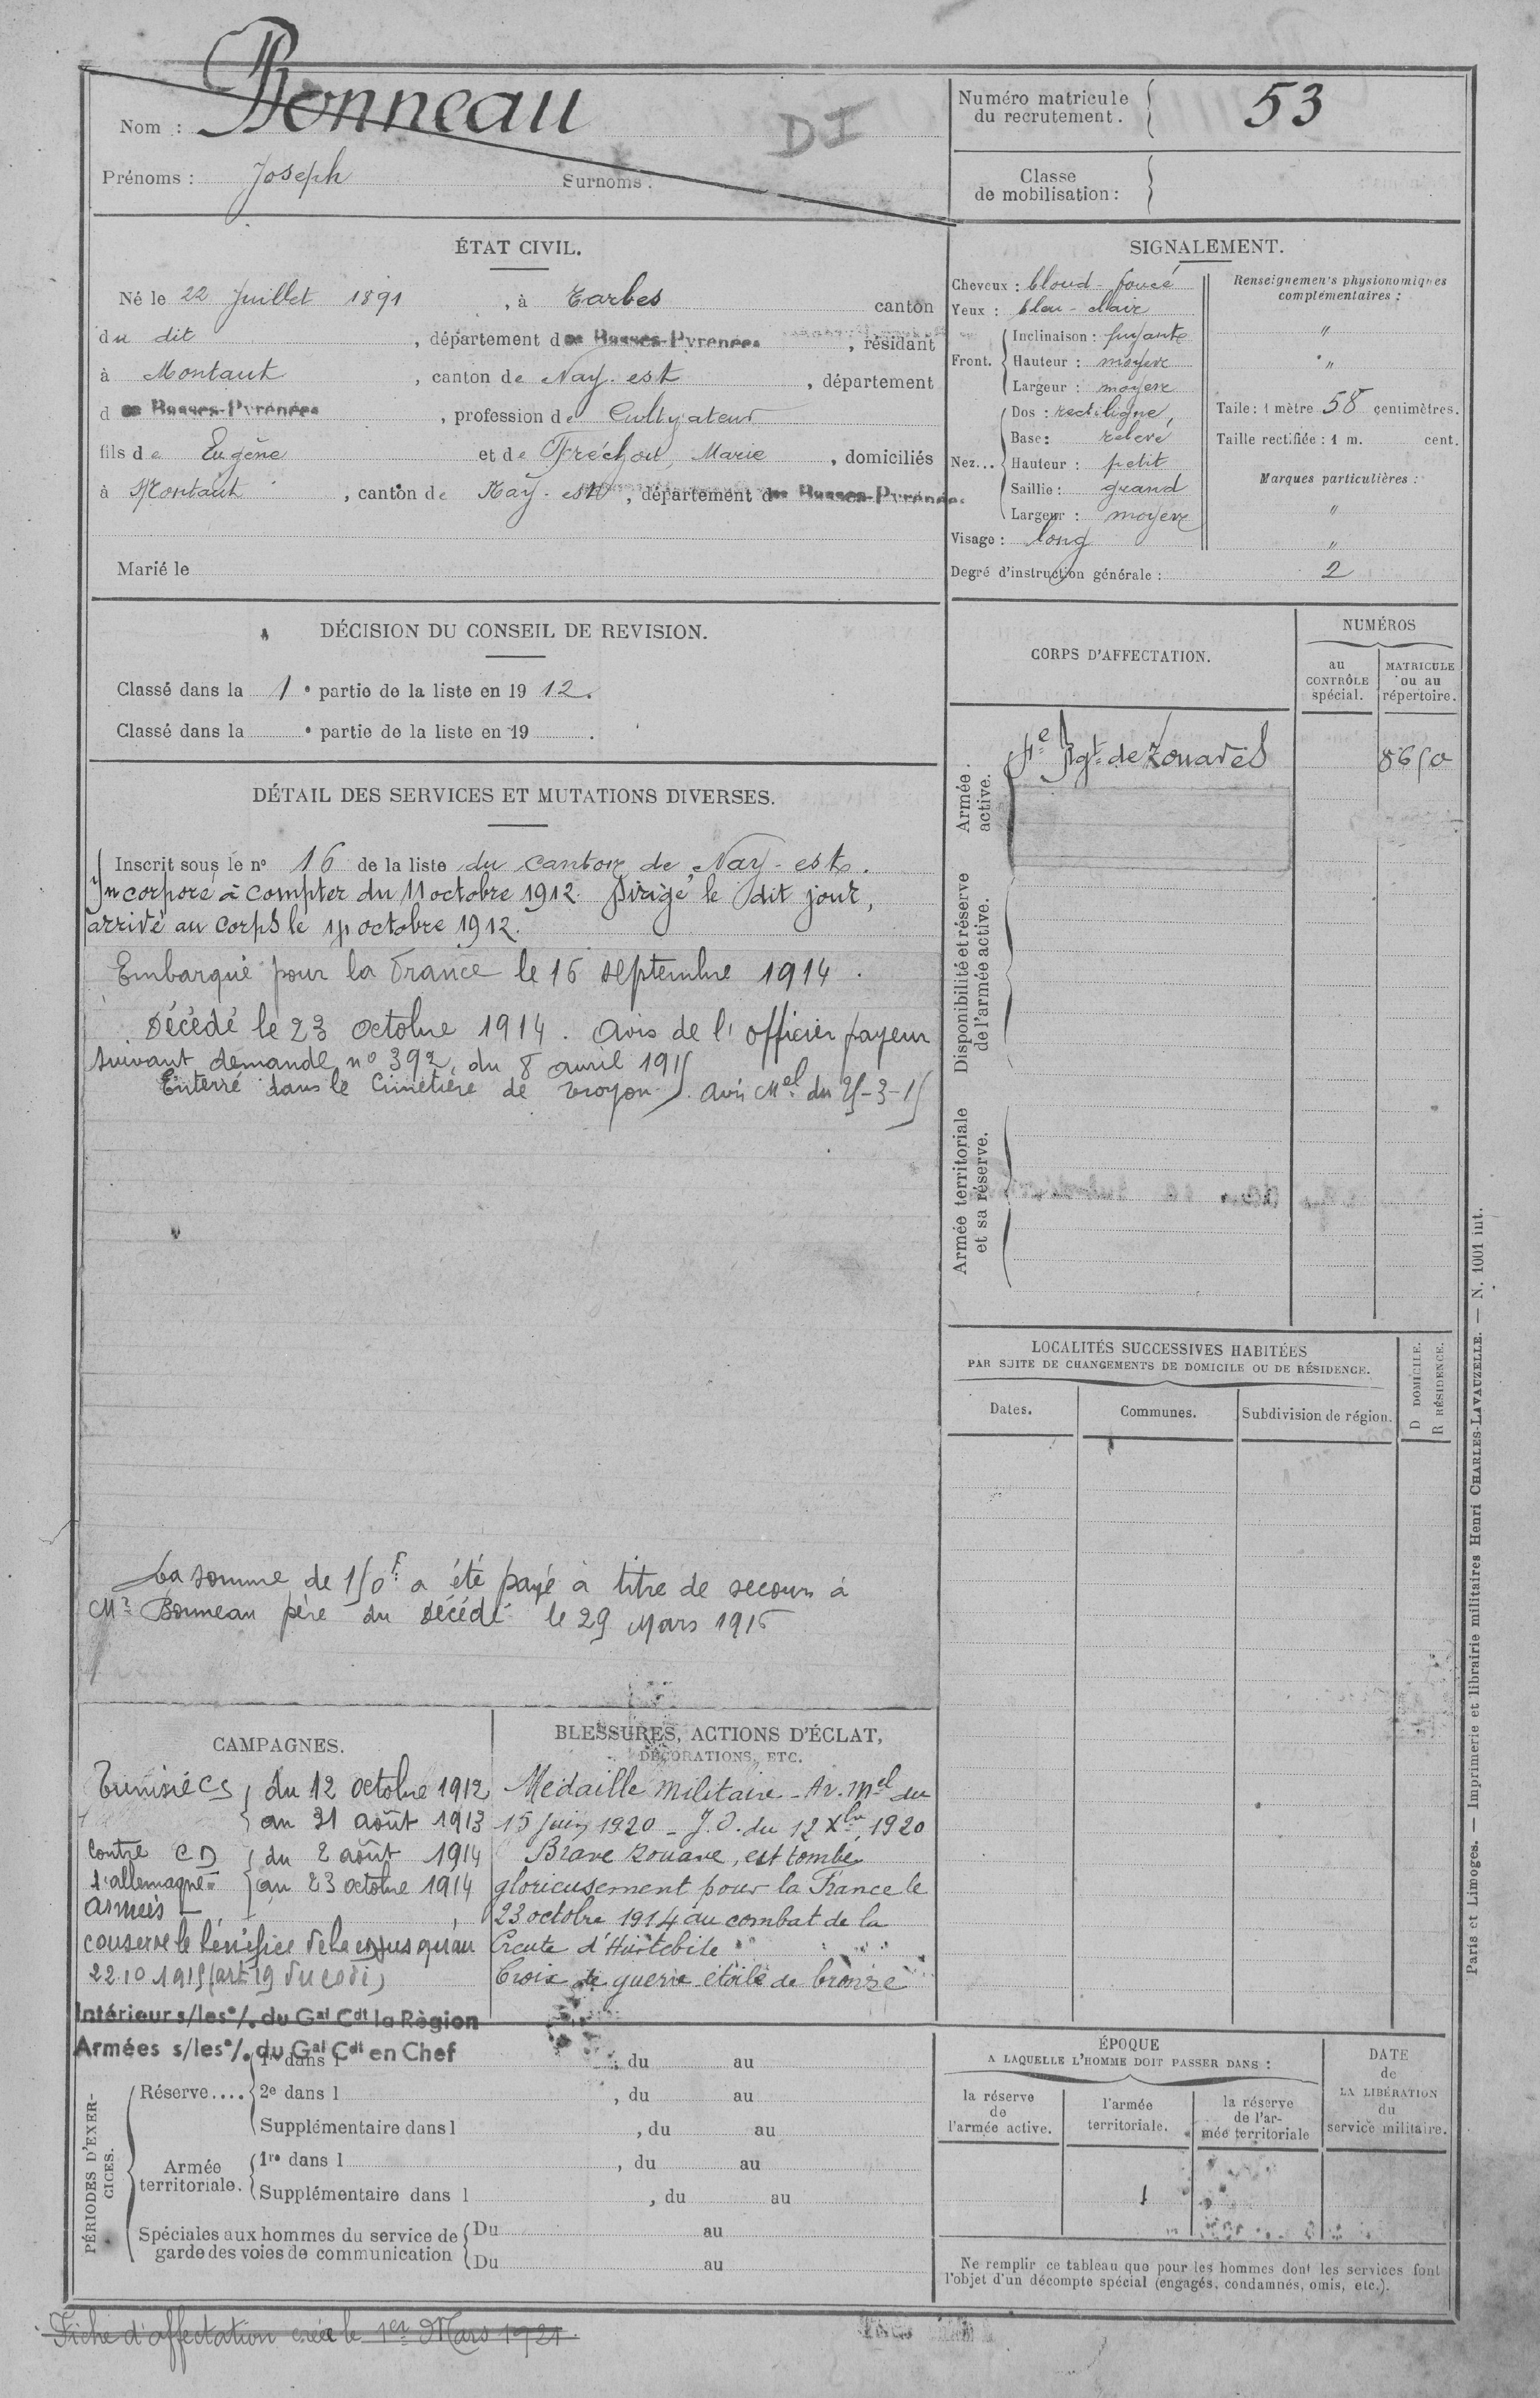 Nom : Bonneau
DI
Prénoms : Joseph Surnoms :
Numéro matricule du recrutement. 53
Classe de mobilisation :
ÉTAT CIVIL.
Né le 22 Juillet 1891, à Tarbes canton
du dit, département des Basses-Pyrénées, résidant
à Montaut, canton de Nay-est, département
des Basses-Pyrénées, profession de Cultivateur
fils de Eugène et de Fréchou, Marie, domiciliés
à Montaut, canton de Nay-est, département des Basses-Pyrénées
Marié le
SIGNALEMENT.
Cheveux : blond-foncé
Yeux : bleu-clair
Front.
Inclinaison : fuyante
Hauteur : moyene
Largeur : moyene
Nez...
Dos : rectiligne
Base : relevé
Hauteur : petit
Saillie : grand
Largeur : moyene
Visage : long
Renseignements physionomiques complémentaires :
"
"
Taille : 1 mètre 58 centimètres.
Taille rectifiée : 1 m. cent.
Marques particulières :
"
"
Degré d'instruction générale : 2
DÉCISION DU CONSEIL DE REVISION.
Classé dans la 1e partie de la liste en 1912.
Classé dans la e partie de la liste en 19 .
DÉTAIL DES SERVICES ET MUTATIONS DIVERSES.
Inscrit sous le n° 16 de la liste du canton de Nay-est.
Incorporé à compter du 11 octobre 1912. Dirigé le dit jour,
arrivé au corps le octobre 1912.
Embarqué pour la France le 16 septembre 1914.
Décédé le 23 octobre 1914. Avis de l'officier payeur
suivant demande n° 392, du 8 avril 1915
Enterré dans le Cimetière de Troyon. Avis Mel du 25-3-15
La somme de 150f a été payé à titre de secours à
Mr Bonneau père du décédé le 29 Mars 1916
CORPS D'AFFECTATION.
NUMÉROS
au CONTRÔLE spécial.
MATRICULE ou au répertoire.
Armée active.
4e Rgt de Zouaves 8650
Disponibilité et réserve de l'armée active.
Armée territoriale et sa réserve.
LOCALITÉS SUCCESSIVES HABITÉES
PAR SUITE DE CHANGEMENTS DE DOMICILE OU DE RÉSIDENCE.
Dates. Communes. Subdivision de région.
D DOMICILE.
R RÉSIDENCE.
CAMPAGNES.
Tunisie CS du 12 octobre 1912
au 31 août 1913
Contre CD du 2 août 1914
l'allemagne au 23 octobre 1914
armées
conserve le bénéfice de la CD jusqu'au
22.10 1915 (art 19 du code)
Intérieur s/les o/. du Gal Cdt la Région
Armées s/les o/. du Gal Cdt en Chef
BLESSURES, ACTIONS D'ÉCLAT,
DÉCORATIONS, ETC.
Médaille Militaire - Ar. Mel du
15 juin 1920 - J.O. du 12 Xbre 1920
Brave zouave, est tombé
glorieusement pour la France le
23 octobre 1914 au combat de la
Creute d'Hurtebise
Croix de guerre étoile de bronze
PÉRIODES D'EXERCICES.
Réserve....
1re dans l , du au
2e dans l , du au
Supplémentaire dans l , du au
Armée territoriale.
1re dans l , du au
Supplémentaire dans l , du au
Spéciales aux hommes du service de garde des voies de communication
Du au
Du au
ÉPOQUE
A LAQUELLE L'HOMME DOIT PASSER DANS :
la réserve de l'armée active.
l'armée territoriale.
la réserve de l'armée territoriale
DATE de LA LIBÉRATION du service militaire.
Ne remplir ce tableau que pour les hommes dont les services font
l'objet d'un décompte spécial (engagés, condamnés, omis, etc.).
Fiche d'affectation créée le 1er Mars 1921.
Paris et Limoges. — Imprimerie et librairie militaires Henri CHARLES-LAVAUZELLE. — N. 1001 int.